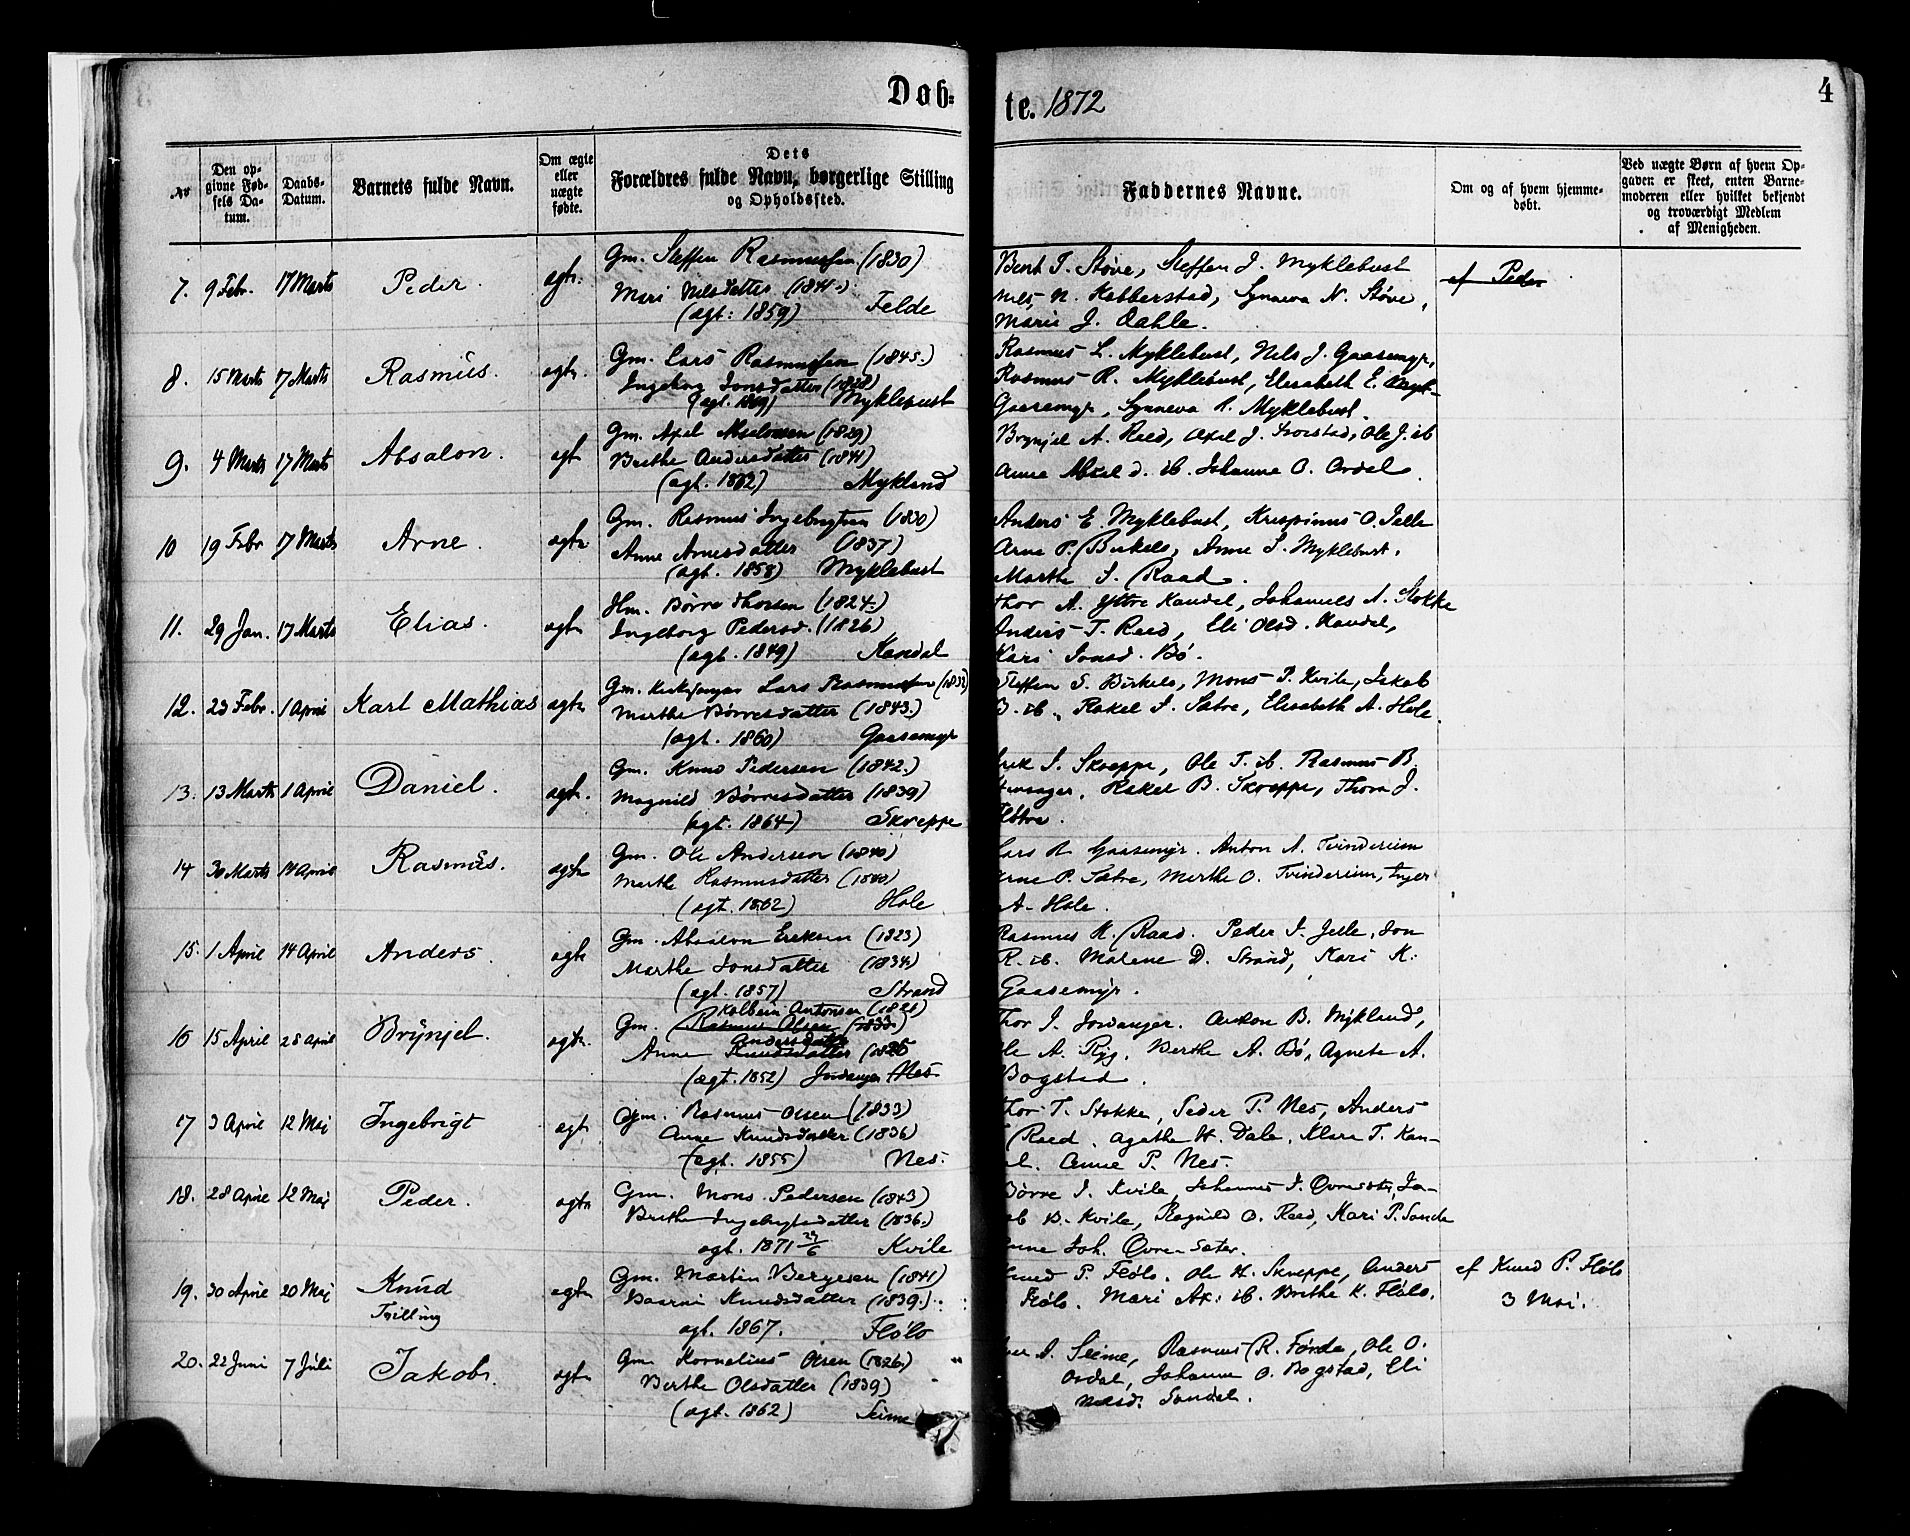 Døb=
te. 1872
4
Nr
Den op-
givne Fød-
sels Da-
tum.
Daabs-
Datum.
Barnets fulde Navn.
Om ægte
eller
uægte
fødte.
Dets
Forældres fulde Navn, borgerlige Stilling
og Opholdssted.
Faddernes Navne.
Om og af hvem hjemme-
døbt.
Ved uægte Børn af hvem Op-
gaven er skeet, enten Barne-
moderen eller hvilket bekjendt
og troværdigt Medlem
af Menigheden.
7. 9 Febr. 17 Marts Peder. ægte.
Gm. Steffen Rasmussen (1830)
Mari Nilsdatter (1841.)
(ægt: 1859) Felde
Bent T. Støve, Steffen J. Myklebust
Nils N. Kobberstad, Synneva N. Støve,
Marie J. Dahle.
af Peder
8. 15 Marts 17 Marts Rasmus. ægte.
Gm. Lars Rasmussen (1845.)
Ingeborg Jonsdatter (1848)
(ægt. 1869) Myklebust
Rasmus L. Myklebust, Nels J. Gaasemyr,
Rasmus R. Myklebust, Elisabeth E.
Gaasemyr, Synneva R. Myklebust.
9. 4 Marts 17 Marts Absalon. ægt
Gm. Axel Absalonsen (1829)
Brithe Andersdatter (1841)
(ægt. 1862) Mykland
Brynjel A. Reed, Axel J. Ole J. ib
Anne Absal d. ib. Johanne O. Ordal.
10 19 Febr 17 Marts Arne. ægte
Gm. Rasmus Ingebrigtsen (1830)
Anne Arnesdatter (1837)
(ægt. 1858) Myklebust
Anders E. Myklebust, Krispinus O. Jelle
Arne P. Birkelo, Anne S. Myklebust.
Marthe S. Raad.
11. 29 Jan. 17 Marts Elias. ægte
Hm. Børre Thorsen (1824.)
Ingeborg Pedersd. (1826)
(ægt. 1849) Kandal
Thor A. Yttre Kandal, Johannes A. Stokke
Anders T. Reed, Eli Olsd. Kandal,
Kari Jonsd. Bø.
12. 23 Febr. 1 April Karl Mathias ægte
Gm. Kirkesanger Lars Rasmussen (1832)
Marthe Børresdatter (1843.)
(ægt. 1860) Gaasemyr
Steffen S. Birkelo, Mons P. Kvile, Jakob
B. ib, Rakel S. Sætre, Elisabeth A. Hole.
13. 13 Marts 1 April Daniel. ægte.
Gm. Knud Pedersen (1842.)
Magnild Børresdatter (1839)
(ægt. 1864) Skreppe
S. Skreppe, Ole T. ib. Rasmus B.
Rakel B. Skreppe, Thora J.
14 30 Marts 14 April Rasmus. ægte
Gm. Ole Andersen (1840)
Marthe Rasmusdatter (1840)
(ægt. 1862) Hole
Lars R Gaasemyr. Anton A. Tvinderium
Arne P. Sætre, Marthe O. Tvinderium, Inger
A. Hole.
15. 1 April 14 April Anders. ægte
Gm. Absalon Eriksen (1823)
Marthe Jonsdatter (1834.)
(ægt. 1857) Strand
Rasmus K. Raad. Peder J. Jelle, Jon
R. ib. Malene D. Strand, Kari K.
Gaasemyr.
16 15 April 28 April Brynjel. ægte.
Kolbein Antonsen (1821)
Gm. Rasmus Olsen (1833.)
Andersdatter
Anne Knudsdatter (1826
(ægt. 1852) Jordanger Nes
Thor J. Jordanger. Anton B. Mykland,
Ole A. Ryg, Berthe A. Bø, Agnete A.
Bogstad.
17 3 April 12 Maj Ingebrigt ægt
Gm. Rasmus Olsen (1833)
Anne Knudsdatter (1836)
(ægt. 1855) Nes.
Thor T. Stokke, Peder P. Nes, Anders
Reed. Agathe H. Dale, Klara T. Kan-
dal. Anne P. Nes.
18. 28 April 12 Maj Peder. ægte
Gm. Mons Pedersen (1843)
Brithe Ingebrigtsdatter (1836.)
ægt. 1871 29/6 Kvile
Børre J. Kvile, Johannes J. Øvresæter, Ja-
kob B. Kvile, Ragnild O. Reed, Mari P. Sande
Anne Joh. Øvre-Sæter.
19. 30 April 20 Maj Knud ægte
Tvilling
Gm. Martin Bergesen (1841)
Baarni Knudsdatter (1839.)
ægt. 1867. Fløto
Knud P. Fløto. Ole H. Skreppe, Anders
Fløto. Mari Ax: ib. Brithe K. Fløto.
af Knud P. Fløto
3 Mai.
20. 22 Juni 7 Juli Jakob. ægte
Gm. Kornelius Olsen (1826.)
Berthe Olsdatter (1839)
(ægt. 1862) Seime
A. Seime, Rasmus R. Førde, Ole O.
Ordal, Johanne O. Bogstad, Eli
Nilsd. Sandal.